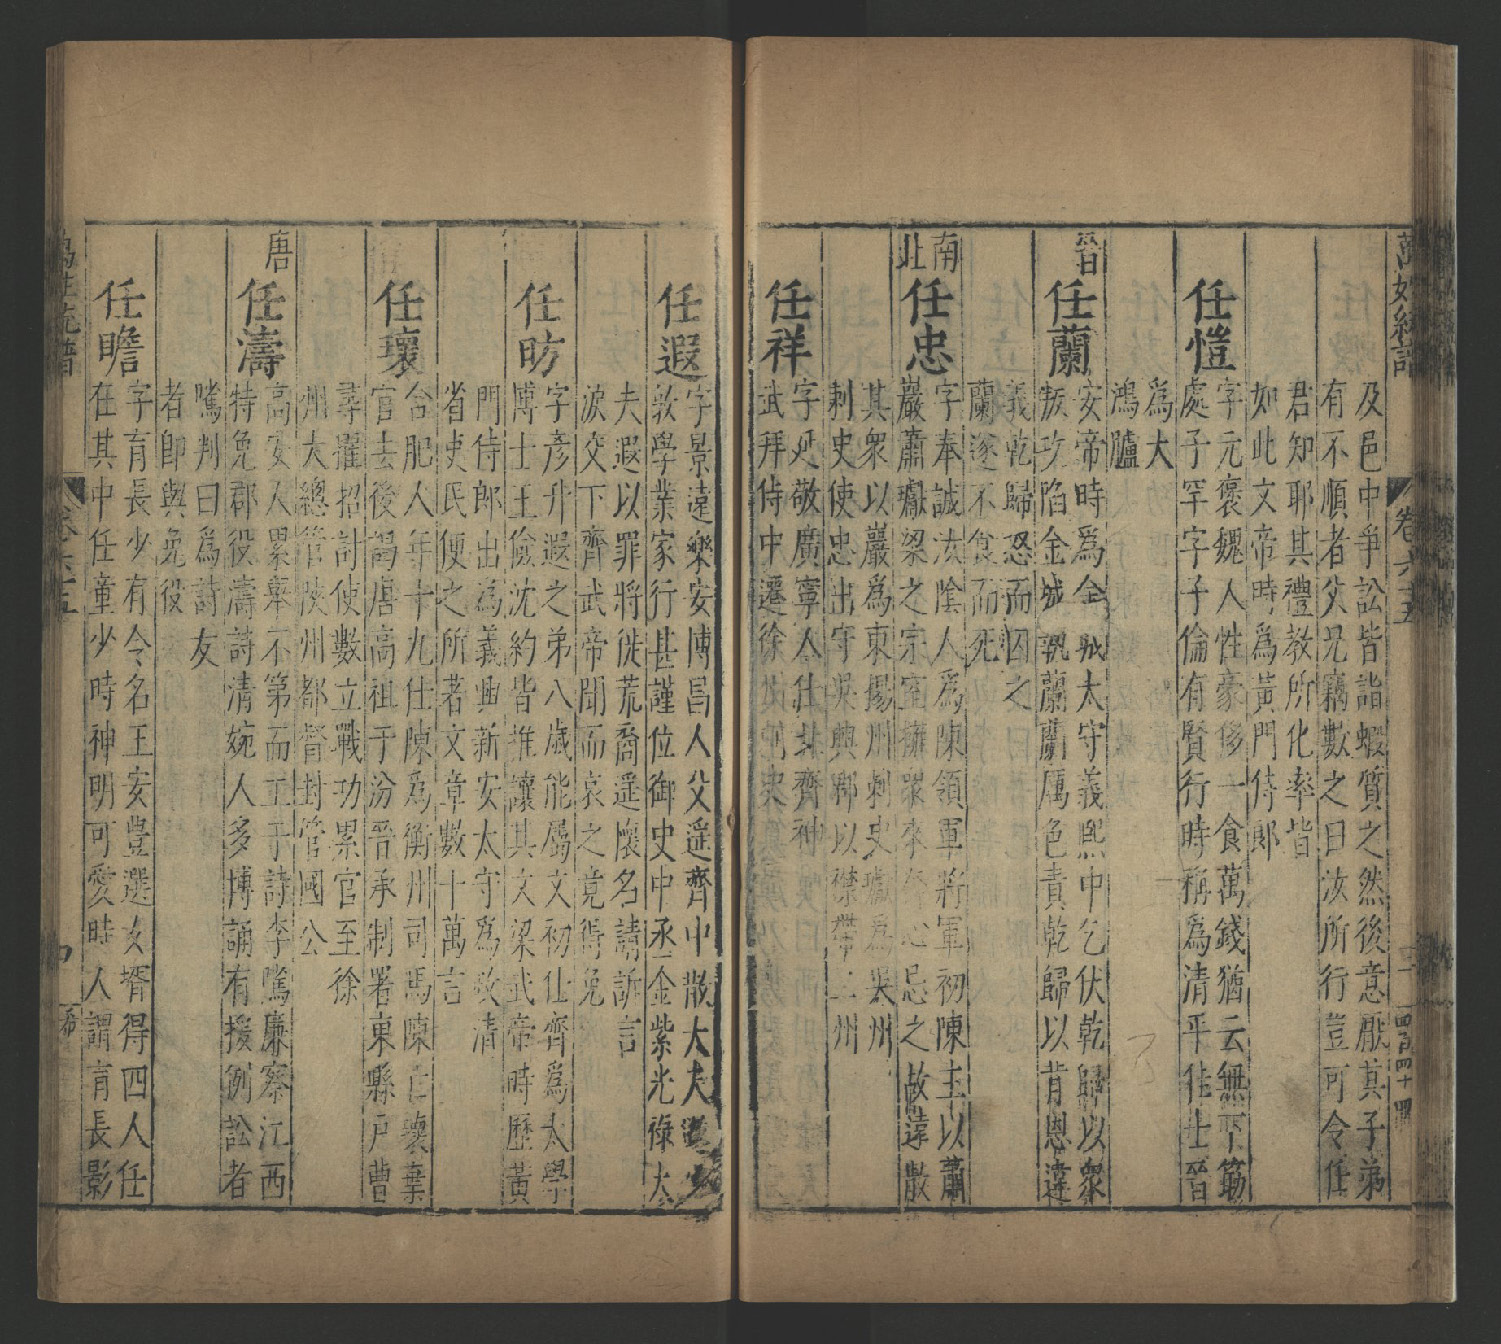 萬姓統譜
卷六十五
及邑中爭訟皆詣嘏質之然後意厭其子弟
有不順者父兄竊數之曰汝所行豈可令任
君知耶其禮教所化率皆
如此文帝時爲黃門侍郎
任愷
字元褒魏人性豪侈一食萬錢猶云無下筯
處子罕字子倫有賢行時稱爲清平佳士晉
爲大
鴻臚
晉
任蘭
安帝時爲金城太守義熙中乞伏乾歸以衆
叛攻陷金城執蘭蘭厲色責乾歸以背恩違
義乾歸恐而囚之
蘭遂不食而死
南北
任忠
字奉誠汝陰人爲陳領軍將軍初陳主以蕭
巖蕭瓛梁之宗室擁眾來奔心忌之故遠散
其衆以巖爲東揚州刺史瓛爲吳州
刺史使忠出守吳興郡以襟帶二州
任祥
字延敬廣寧人仕北齊神
武拜侍中遷徐州刺史
任遐
字景遠樂安博昌人父遥齊中散大夫遐少
敦學業家行甚謹位御史中丞金紫光祿大
夫遐以罪將徙荒裔遥懷名請訴言
淚交下齊武帝聞而哀之竟得免
任昉
字彥升遐之弟八歲能屬文初仕齊爲太學
博士王儉沈約皆推讓其文梁武帝時歷黃
門侍郎出爲義興新安太守爲政清
省吏民便之所著文章數十萬言
任瓌
合肥人年十九仕陳爲衡州司馬陳亡瓌棄
官去後謁唐高祖于汾晉承制署東縣戸曹
尋擢招討使數立戰功累官至徐
州大總管陜州都督封管國公
唐
任濤
高安人累舉不第而工于詩李隲廉察江西
特免郡役濤詩清婉人多博誦有援例訟者
隲判曰爲詩友
者卽與免役
任瞻
字育長少有令名王安豐選女壻得四人任
在其中任童少時神明可愛時人謂育長影
卷六十五